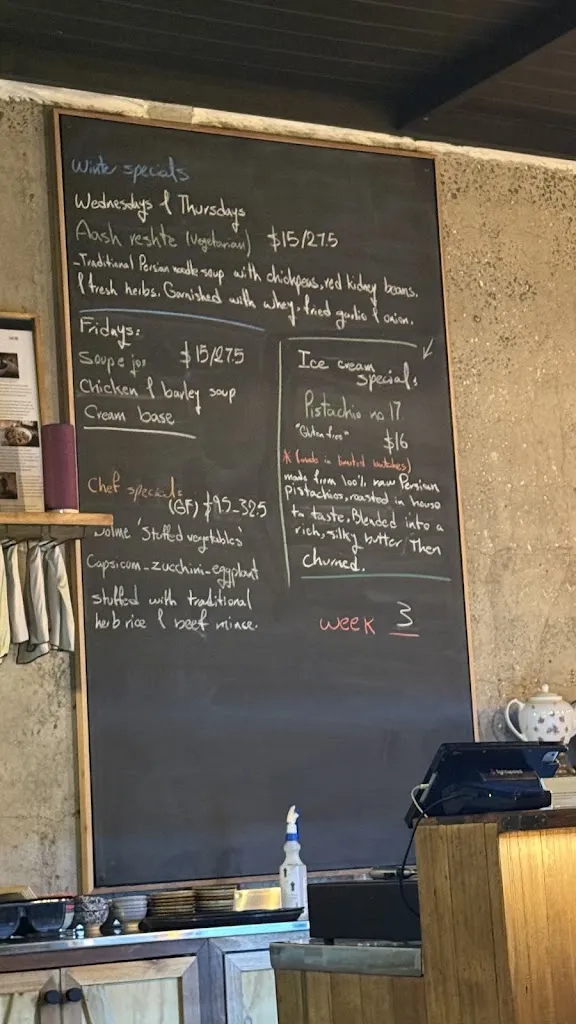 Winter specials
Wednesdays & Thursdays
Aash reshte (Vegetarian) $15/27.5
-Traditional Persian noodle soup with chickpeas, red kidney beans,
& fresh herbs. Garnished with whey, fried garlic & onion.
Fridays:
Soupe jo $15/27.5
Chicken & barley soup
Cream base
Chef specials
(GF)
Dolme 'Stuffed vegetables'
Capsicum-zucchini-eggplant
stuffed with traditional
herb rice & beef mince.
Ice cream
special:
Pistachio no 17
"Gluten free" $16
* (made in limited batches)
made from 100% raw Persian
pistachios, roasted in house
to taste. Blended into a
rich, silky butter Then
churned.
week 3